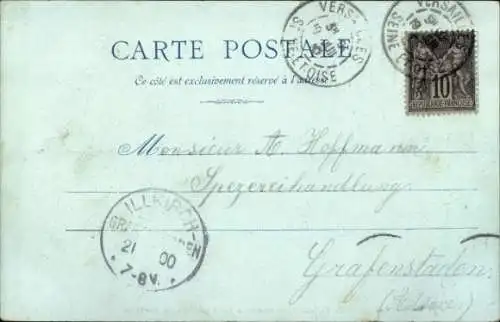 VERSAILLES
SEINE
ET OISE
VERSAILLES
SEINE
CARTE POSTALE
Ce côté est exclusivement réservé à l'adresse
10
REPUBLIQUE FRANÇAISE
Monsieur A. Hoffmann
Spezereihandlung
ILLKIRCH-
21 00
7-8V.
Grafenstaden
(Alsace)